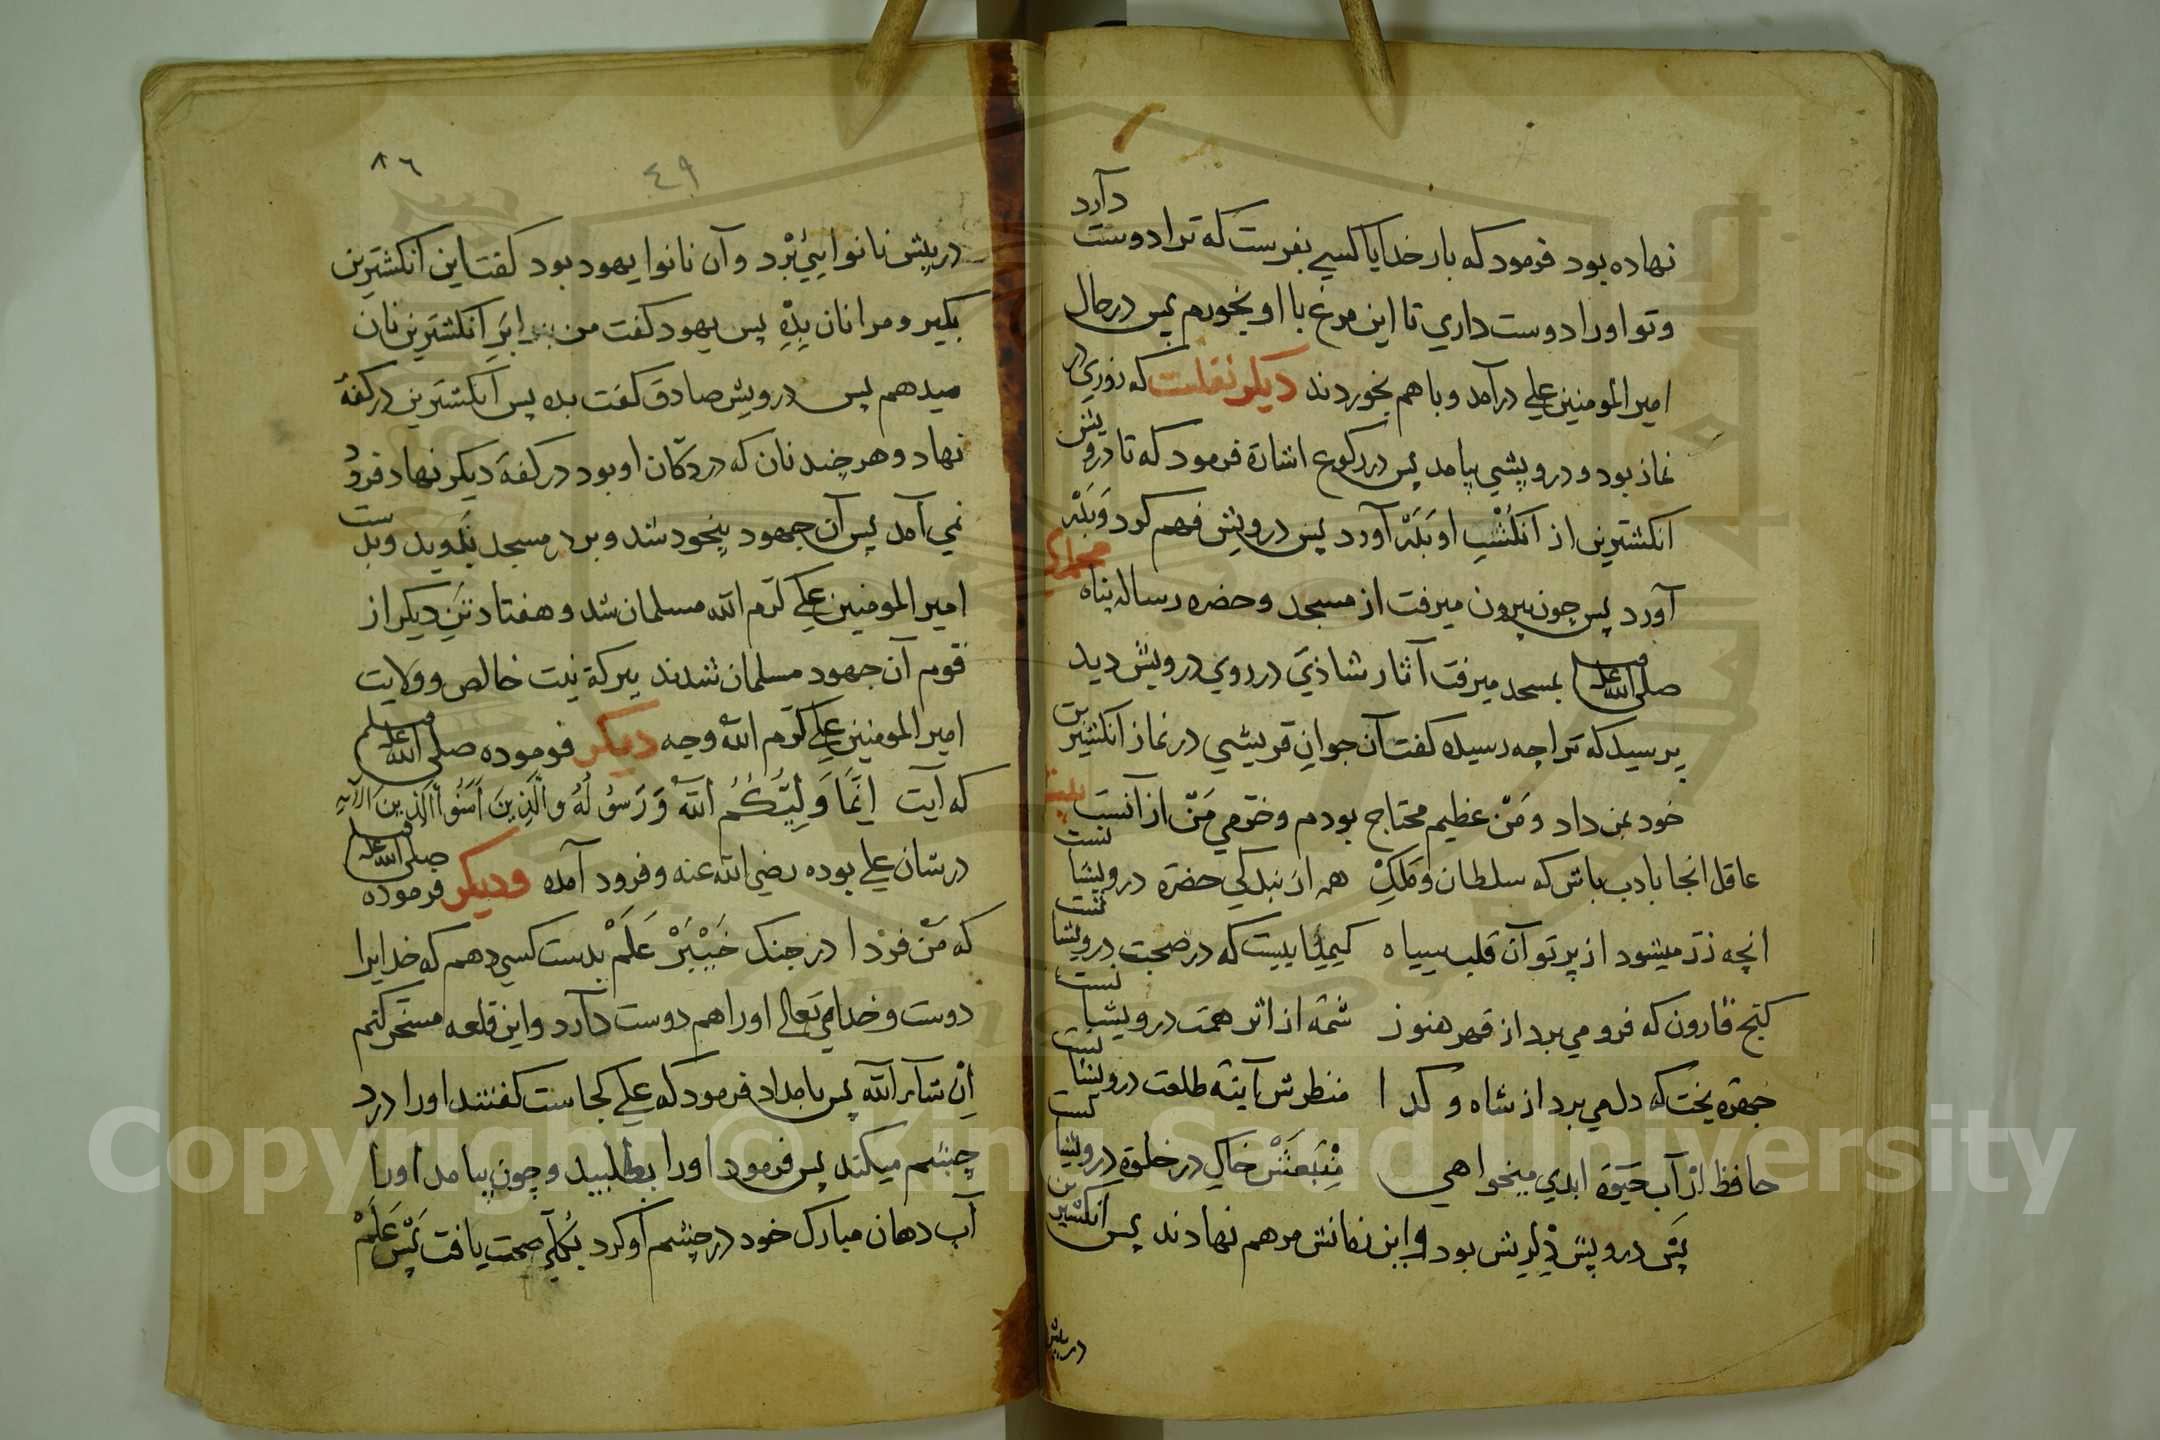 نهاده بود فرمود که بار خدایا کسی بفرست که ترا دوست دارد
و تو او را دوست داري تا این مرغ با او بخورم پس در حال
امیر المومنین علي در آمد و با هم بخوردند دیکر نقلست که روزي در
نماز بود و درویشي بیامد پس در رکوع اشارة فرمود که تا درویش
انکشترین از انکُشْتِ او بَدَرْ آورد پس درویش فهم کرد و بَدَرْ
آورد پس چون بیرون میرفت از مسجد و حضره رساله پناه
صلی الله علیه وسلم بمسجد میرفت آثار شاذي در روي درویش دید
پرسید که ترا چه رسیده کفت آن جوان قریشي در نماز انکشترین
خود بمن داد و مَنْ عظیم محتاج بودم و خرّمي مَنْ از آنست
عاقل انجا بادب باش که سلطان و مَلِکْ همه از بندکي حضرة درویشانست
انچه زر میشود از پرتو آن قلب سیاه کیمیاییست که در صحبت درویشانست
کنج قارون که فرو مي برد از قهر هنوز شمه از اثر همت درویشانست
جهرۀ بخت که دل مي برد از شاه و کدا منظرش آینه طلعت درویشانست
حافظ از آب حیوة ابدي میخواهي مَنْبَعَشْ خاک در خلوة درویشانست
پس درویش دلریش بود و این زمانش مرهم نهادند پس انکشترین
در پیش
٨٦
٤٩
در پیش نانوایي بُرْد و آن نانوا یهود بود کفت این انکشترین
بکیر و مرا نان بِدِهْ پس یهود کفت من برابر انکشترین نان
میدهم پس درویش صادق کفت بده پس انکشترین در کفه
نهاد و هر چند نان که در دکان او بود در کفه دیکر نهاد فرو
نمي آمد پس آن جهود بیخود شد و بدر مسجد بدوید و بدست
امیر المومنین علي کرّم الله مسلمان شد و هفتاد تن دیکر از
قوم آن جهود مسلمان شدند ببرکة نیت خالص و ولایت
امیر المومنین علي کرّم الله وجه دیکر فرموده صلی الله علیه وسلم
که آیت اِنَّمَا وَلِیُّکُمُ اللهُ وَرَسُولُهُ وَالَّذِینَ اٰمَنُوا الَّذِینَ الآیه
در شان علي بوده رضي الله عنه و فرود آمده و دیکر فرموده صلی الله علیه وسلم
که مَنْ فردا در جنک خَیْبَرْ عَلَمْ بدست کسي دهم که خدایرا
دوست و خداي تعالی او را هم دوست دارد و این قلعه مسخر کنم
اِنْ شآء الله پس بامداد فرمود که علي کجاست کفتند او را درد
چشم میکند پس فرمود او را بطلبید و چون بیامد او را
آب دهان مبارک خود در چشم او کرد بکلّي صحت یافت پَسْ عَلَمْ